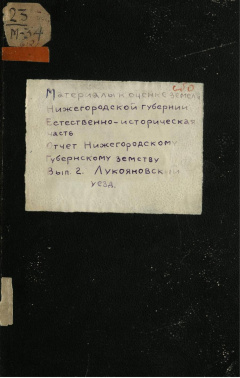 23
М-34
Материалы к оценке земель
Нижегородской губернии
Естественно-историческая
часть
Отчет Нижегородскому
Губернскому земству
Вып. 2. Лукояновский
уезд.